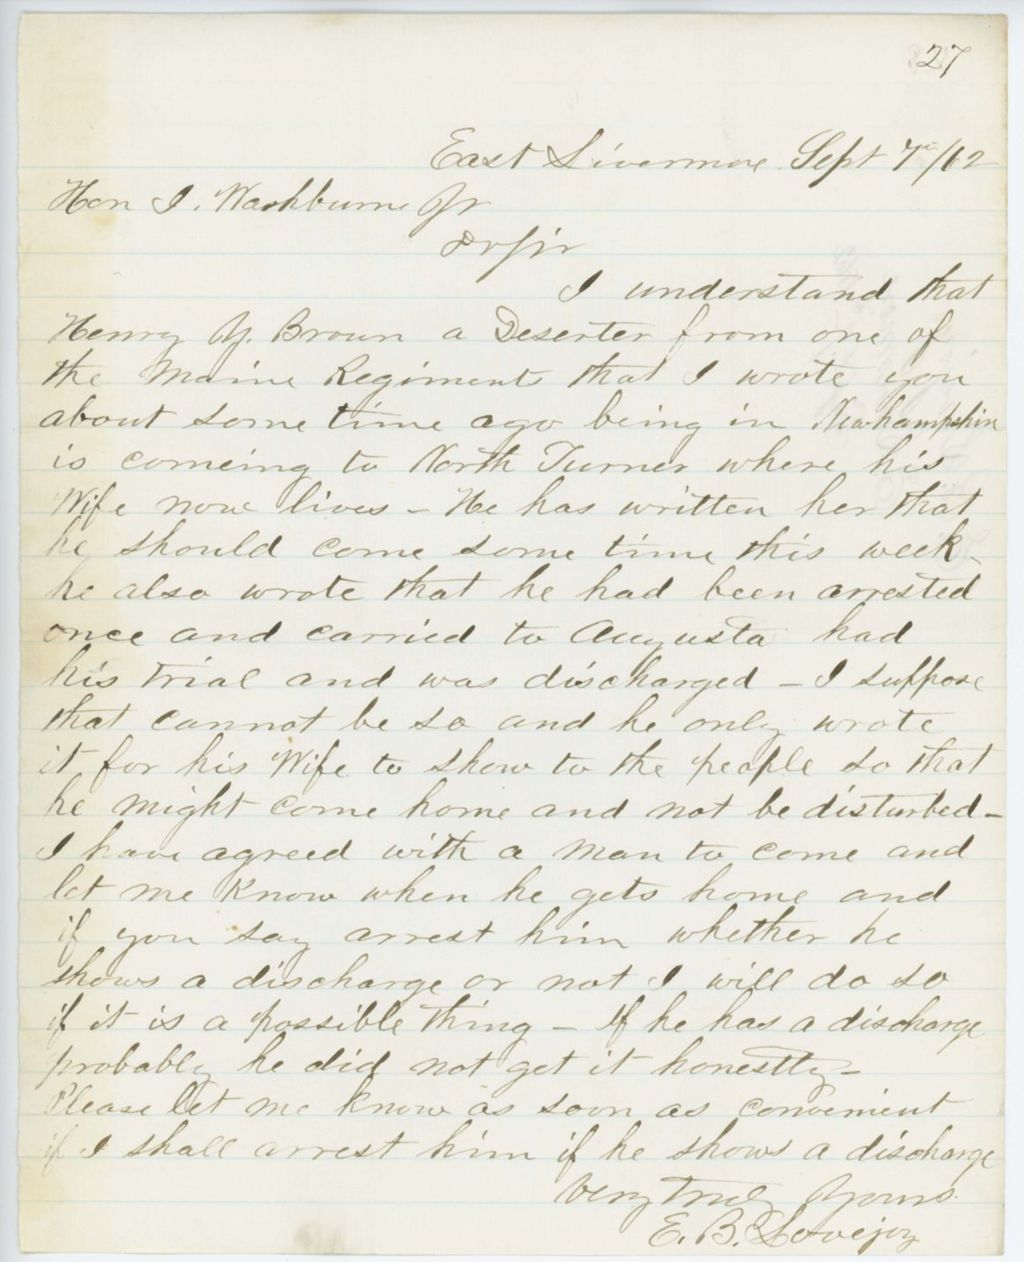 27
East Livermore Sept 7th/62
Hon I. Washburne Jr
Dr Sir
I understand that
Henry Y. Brown a Deserter from one of
the Maine Regiments that I wrote you
about some time ago being in Newhampshire
is comeing to North Turner where his
Wife now lives - He has written her that
he should come some time this week -
he also wrote that he had been arrested
once and carried to Augusta had
his trial and was discharged - I suppose
that cannot be so and he only wrote
it for his Wife to show to the people so that
he might come home and not be disturbed -
I have agreed with a man to come and
let me know when he gets home and
if you say arrest him whether he
shows a discharge or not I will do so
if it is a possible thing - If he has a discharge
probably he did not get it honestly -
Please let me know as soon as convenient
if I shall arrest him if he shows a discharge
Very Truly Yours
E. B. Lovejoy